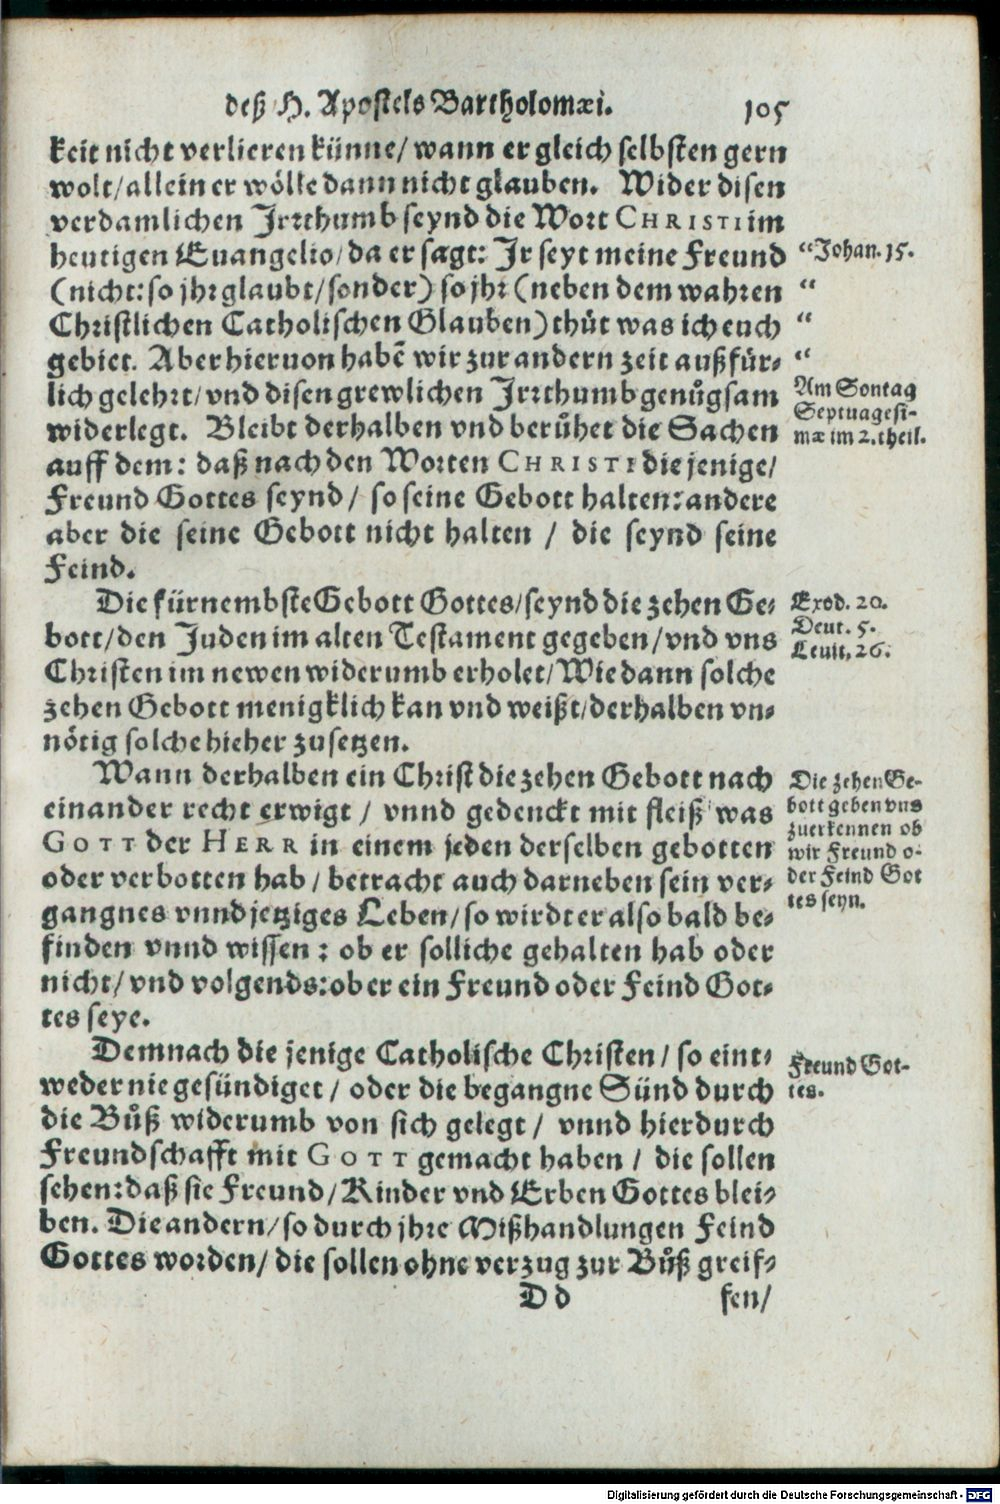 deß H. Apostels Bartholomæi. 105
keit nicht verlieren künne/ wann er gleich selbsten gern
wolt/ allein er wölle dann nicht glauben. Wider disen
verdamlichen Jrrthumb seynd die Wort CHRISTI im
heutigen Euangelio/ da er sagt: Jr seyt meine Freund
“Johan. 15.
(nicht: so jhr glaubt/ sonder) so jhr (neben dem wahren
“
Christlichen Catholischen Glauben) thüt was ich euch
“
gebiet. Aber hieruon habẽ wir zur andern zeit außfür-
“
lich gelehrt/ vnd disen grewlichen Jrrthumb genůgsam
Am Sontag
Septuagesi-
mæ im 2. theil.
widerlegt. Bleibt derhalben vnd berůhet die Sachen
auff dem: daß nach den Worten CHRISTI die jenige/
Freund Gottes seynd/ so seine Gebott halten: andere
aber die seine Gebott nicht halten / die seynd seine
Feind.
Die fürnembste Gebott Gottes/ seynd die zehen Ge-
Exod. 20.
Deut. 5.
Leuit. 26.
bott/ den Juden im alten Testament gegeben/ vnd vns
Christen im newen widerumb erholet/ Wie dann solche
zehen Gebott menigklich kan vnd weißt/ derhalben vn-
nötig solche hieher zusetzen.
Wann derhalben ein Christ die zehen Gebott nach
Die zehen Ge-
bott geben vns
zuerkennen ob
wir Freund o-
der Feind Got
tes seyn.
einander recht erwigt / vnnd gedenckt mit fleiß was
GOTT der HERR in einem jeden derselben gebotten
oder verbotten hab / betracht auch darneben sein ver-
gangnes vnnd jetziges Leben/ so wirdt er also bald be-
finden vnnd wissen: ob er solliche gehalten hab oder
nicht/ vnd volgends: ob er ein Freund oder Feind Got-
tes seye.
Demnach die jenige Catholische Christen/ so eint-
Freund Got-
tes.
weder nie gesündiget / oder die begangne Sünd durch
die Bůß widerumb von sich gelegt / vnnd hierdurch
Freundschafft mit GOTT gemacht haben / die sollen
sehen: daß sie Freund/ Kinder vnd Erben Gottes blei-
ben. Die andern/ so durch jhre Mißhandlungen Feind
Gottes worden/ die sollen ohne verzug zur Bůß greif-
D d fen/
Digitalisierung gefördert durch die Deutsche Forschungsgemeinschaft - DFG